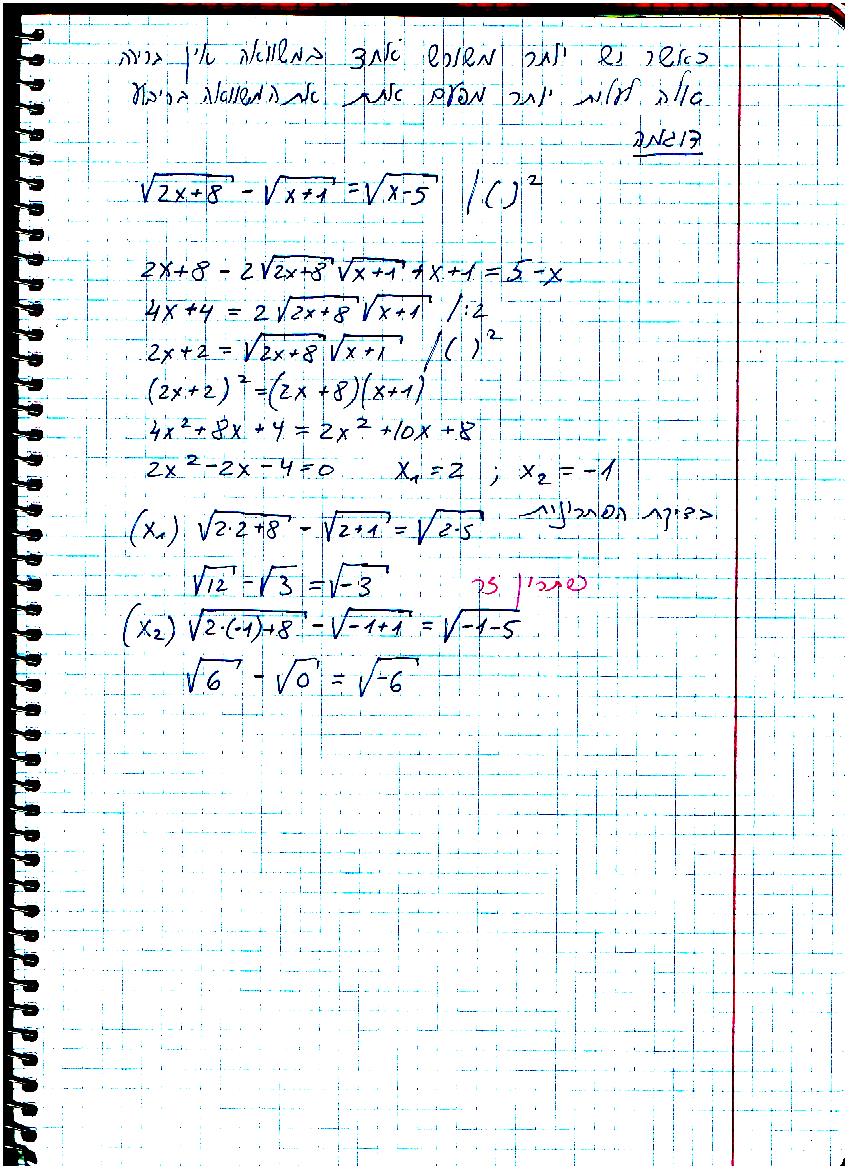 כאשר יש יותר משורש אחד במשוואה אין ברירה
אלה לעלות יותר מפעם אחת את המשוואה בריבוע
דוגמה
√(2x+8) - √(x+1) = √(x-5) /( )²
2x+8 - 2√(2x+8) √(x+1) + x+1 = 5-x
4x+4 = 2√(2x+8) √(x+1) /:2
2x+2 = √(2x+8) √(x+1) /( )²
(2x+2)² = (2x+8)(x+1)
4x² + 8x + 4 = 2x² + 10x + 8
2x² - 2x - 4 = 0 x₁ = 2 ; x₂ = -1
בדיקת הפתרונות
(x₁) √(2·2+8) - √(2+1) = √(2·5)
√12 - √3 = √-3 פתרון זר
(x₂) √(2·(-1)+8) - √(-1+1) = √(-1-5)
√6 - √0 = √-6